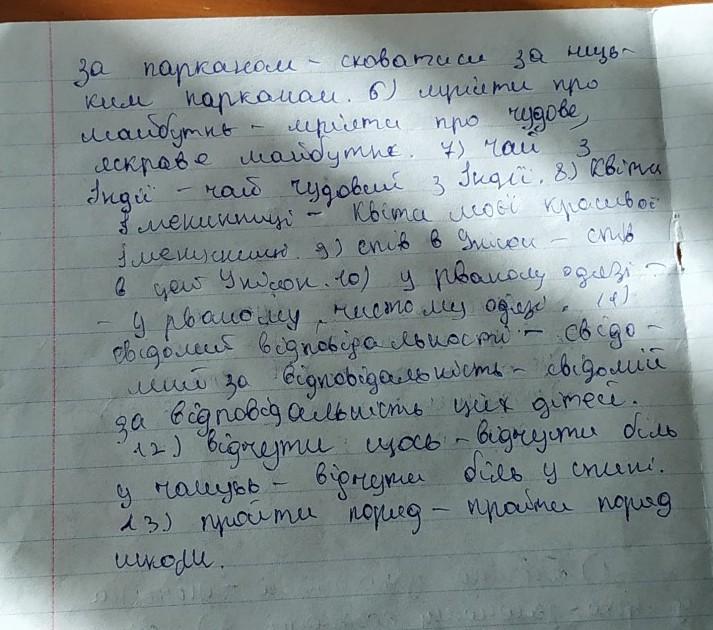 за парканом - сховатися за низь-
ким парканом. 6) мріяти про
майбутнє - мріяти про чудове,
яскраве майбутнє. 7) чай з
Індії - чай чудовий з Індії. 8) Квіти
Іменинниці - квіти моєї красивої
Іменинниці. 9) спів в Унісон - спів
в цей Унісон. 10) у рваному одязі -
- у рваному, чистому одязі. 11)
свідомий відповідальності - свідо-
мий за відповідальність - свідомий
за відповідальність цих дітей.
12) відчути щось - відчути біль
у - відчути біль у спині.
13) пройти поряд - пройти поряд
школи.